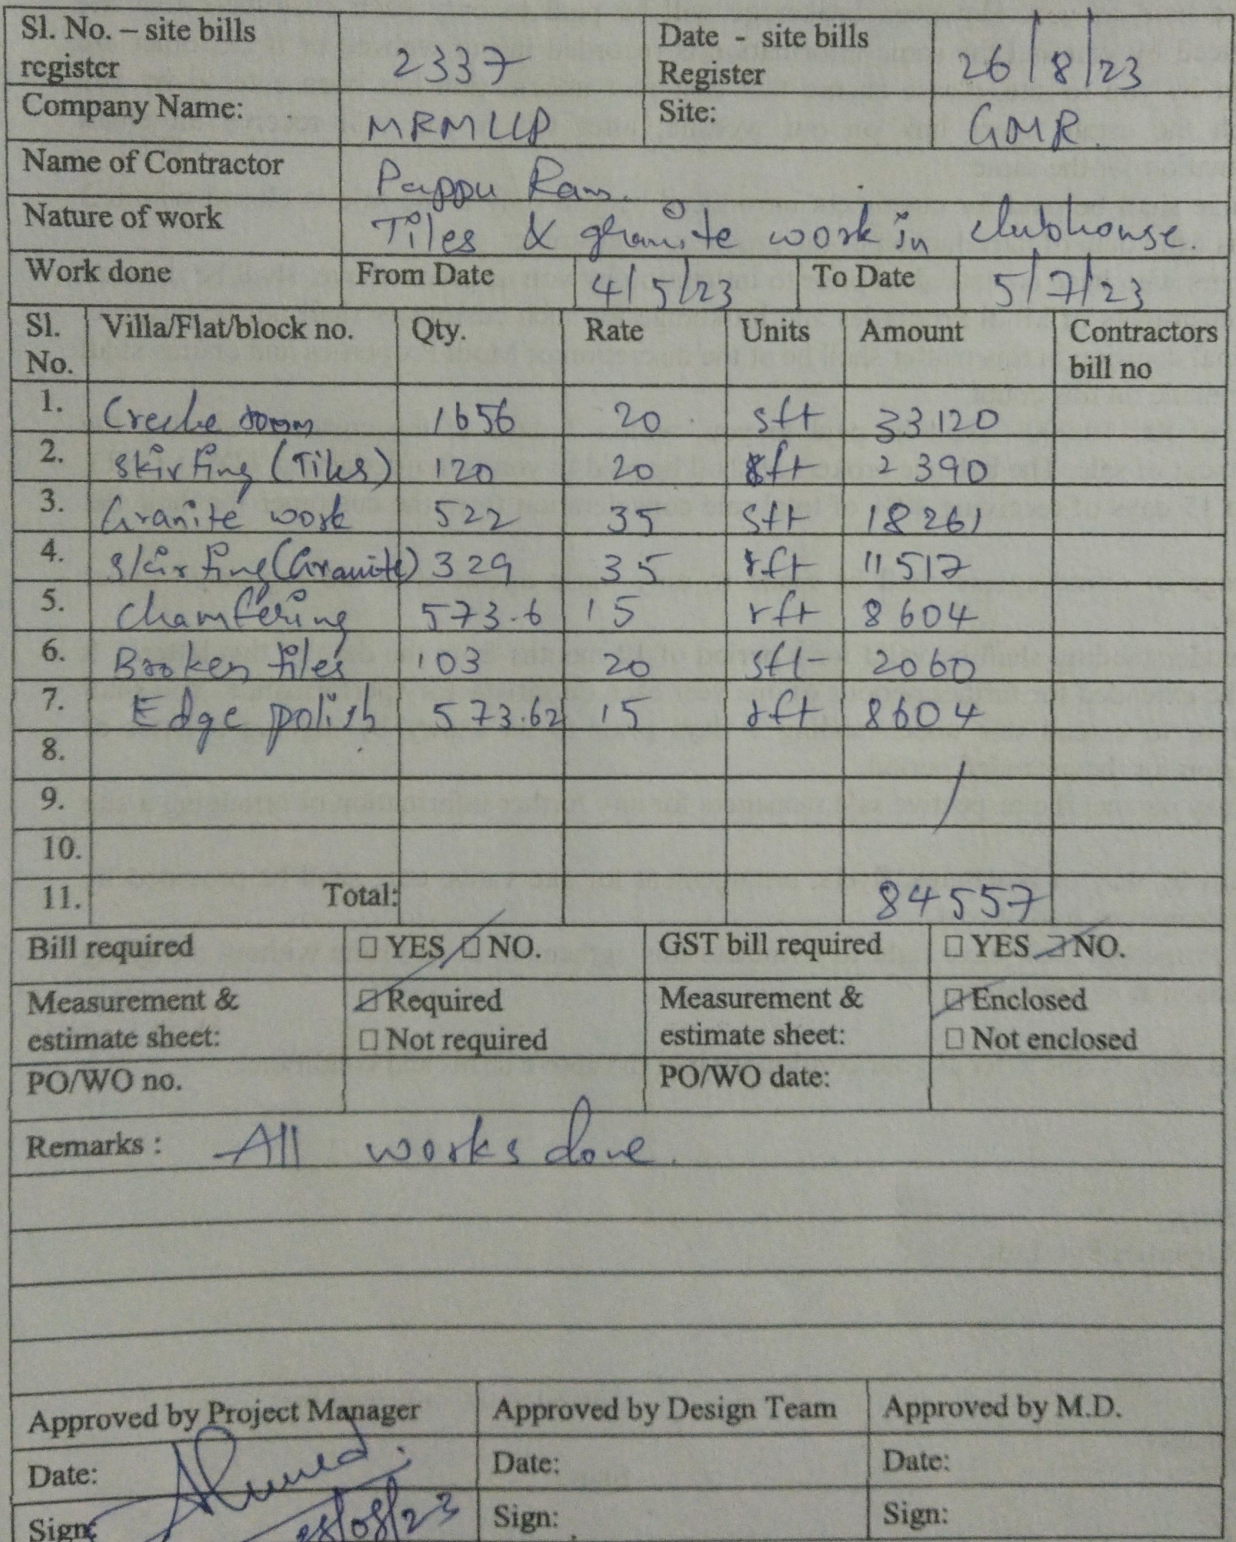 Sl. No. – site bills register 2337 Date - site bills Register 26/8/23
Company Name: MRMLLP Site: GMR.
Name of Contractor Pappu Ram.
Nature of work Tiles & granite work in clubhouse.
Work done From Date 4/5/23 To Date 5/7/23
Sl. No. Villa/Flat/block no. Qty. Rate Units Amount Contractors bill no
1. Creche room 1656 20 sft 33120
2. Skirting (Tiles) 120 20 sft 2390
3. Granite work 522 35 sft 18261
4. Skirting (Granite) 329 35 rft 11517
5. Chamfering 573.6 15 rft 8604
6. Broken tiles 103 20 sft 2060
7. Edge polish 573.62 15 rft 8604
8.
9.
10.
11. Total: 84557
Bill required YES NO. GST bill required YES NO.
Measurement & estimate sheet: Required Not required Measurement & estimate sheet: Enclosed Not enclosed
PO/WO no. PO/WO date:
Remarks : All works done.
Approved by Project Manager Approved by Design Team Approved by M.D.
Date: Date: Date:
Sign: Sign: Sign: